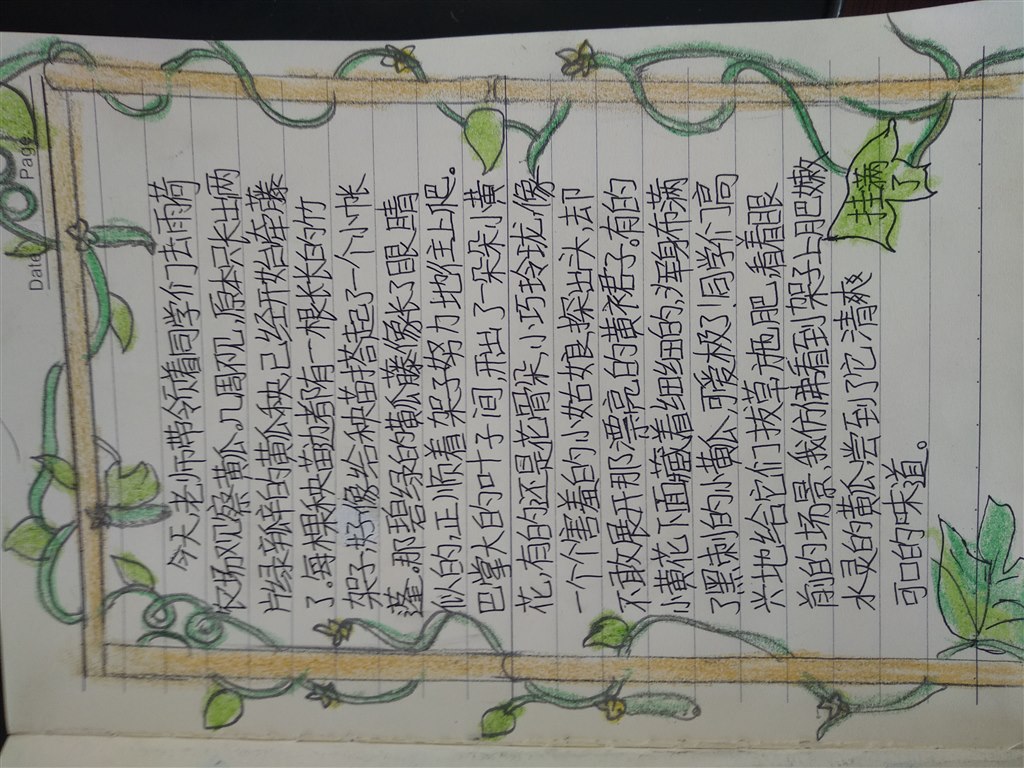 Date
Page
今天,老师带领着同学们去雨荷
农场观察黄瓜。几周不见,原本只长出两
片绿的黄瓜秧,已经开始牵藤
了。每棵秧苗边都有一根长长的竹
架子,好像给秧苗搭起了一个小帐
蓬。那碧绿的黄瓜藤像长了眼睛
似的,正顺着架子努力地往上爬。
巴掌大的叶子间,开出了一朵朵小黄
花,有的还是花骨朵,小巧玲珑,像
一个个害羞的小姑娘,探出头,却
不敢展开那漂亮的黄裙子。有的
小黄花下面藏着细细的,浑身布满
了黑刺的小黄瓜,可爱极了!同学们高
兴地给它们拔草、施肥,看着眼
前的场景,我仿佛看到架子上肥嫩
水灵的黄瓜,尝到了它清爽
可口的味道。
挂满
了